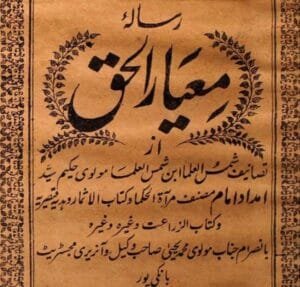 رسالۂ
معیار الحق
از
تصانیف شمس العلما ابن شمس العلما مولوی حکیم سید
امداد امام مصنف مرآۃ الحکما و کتاب الاثمار و ہدیہ قیصریہ
و کتاب الزراعت وغیرہ وغیرہ
بانصرام جناب مولوی محمد یحییٰ صاحب وکیل و آنریری مجسٹریٹ
بانکی پور